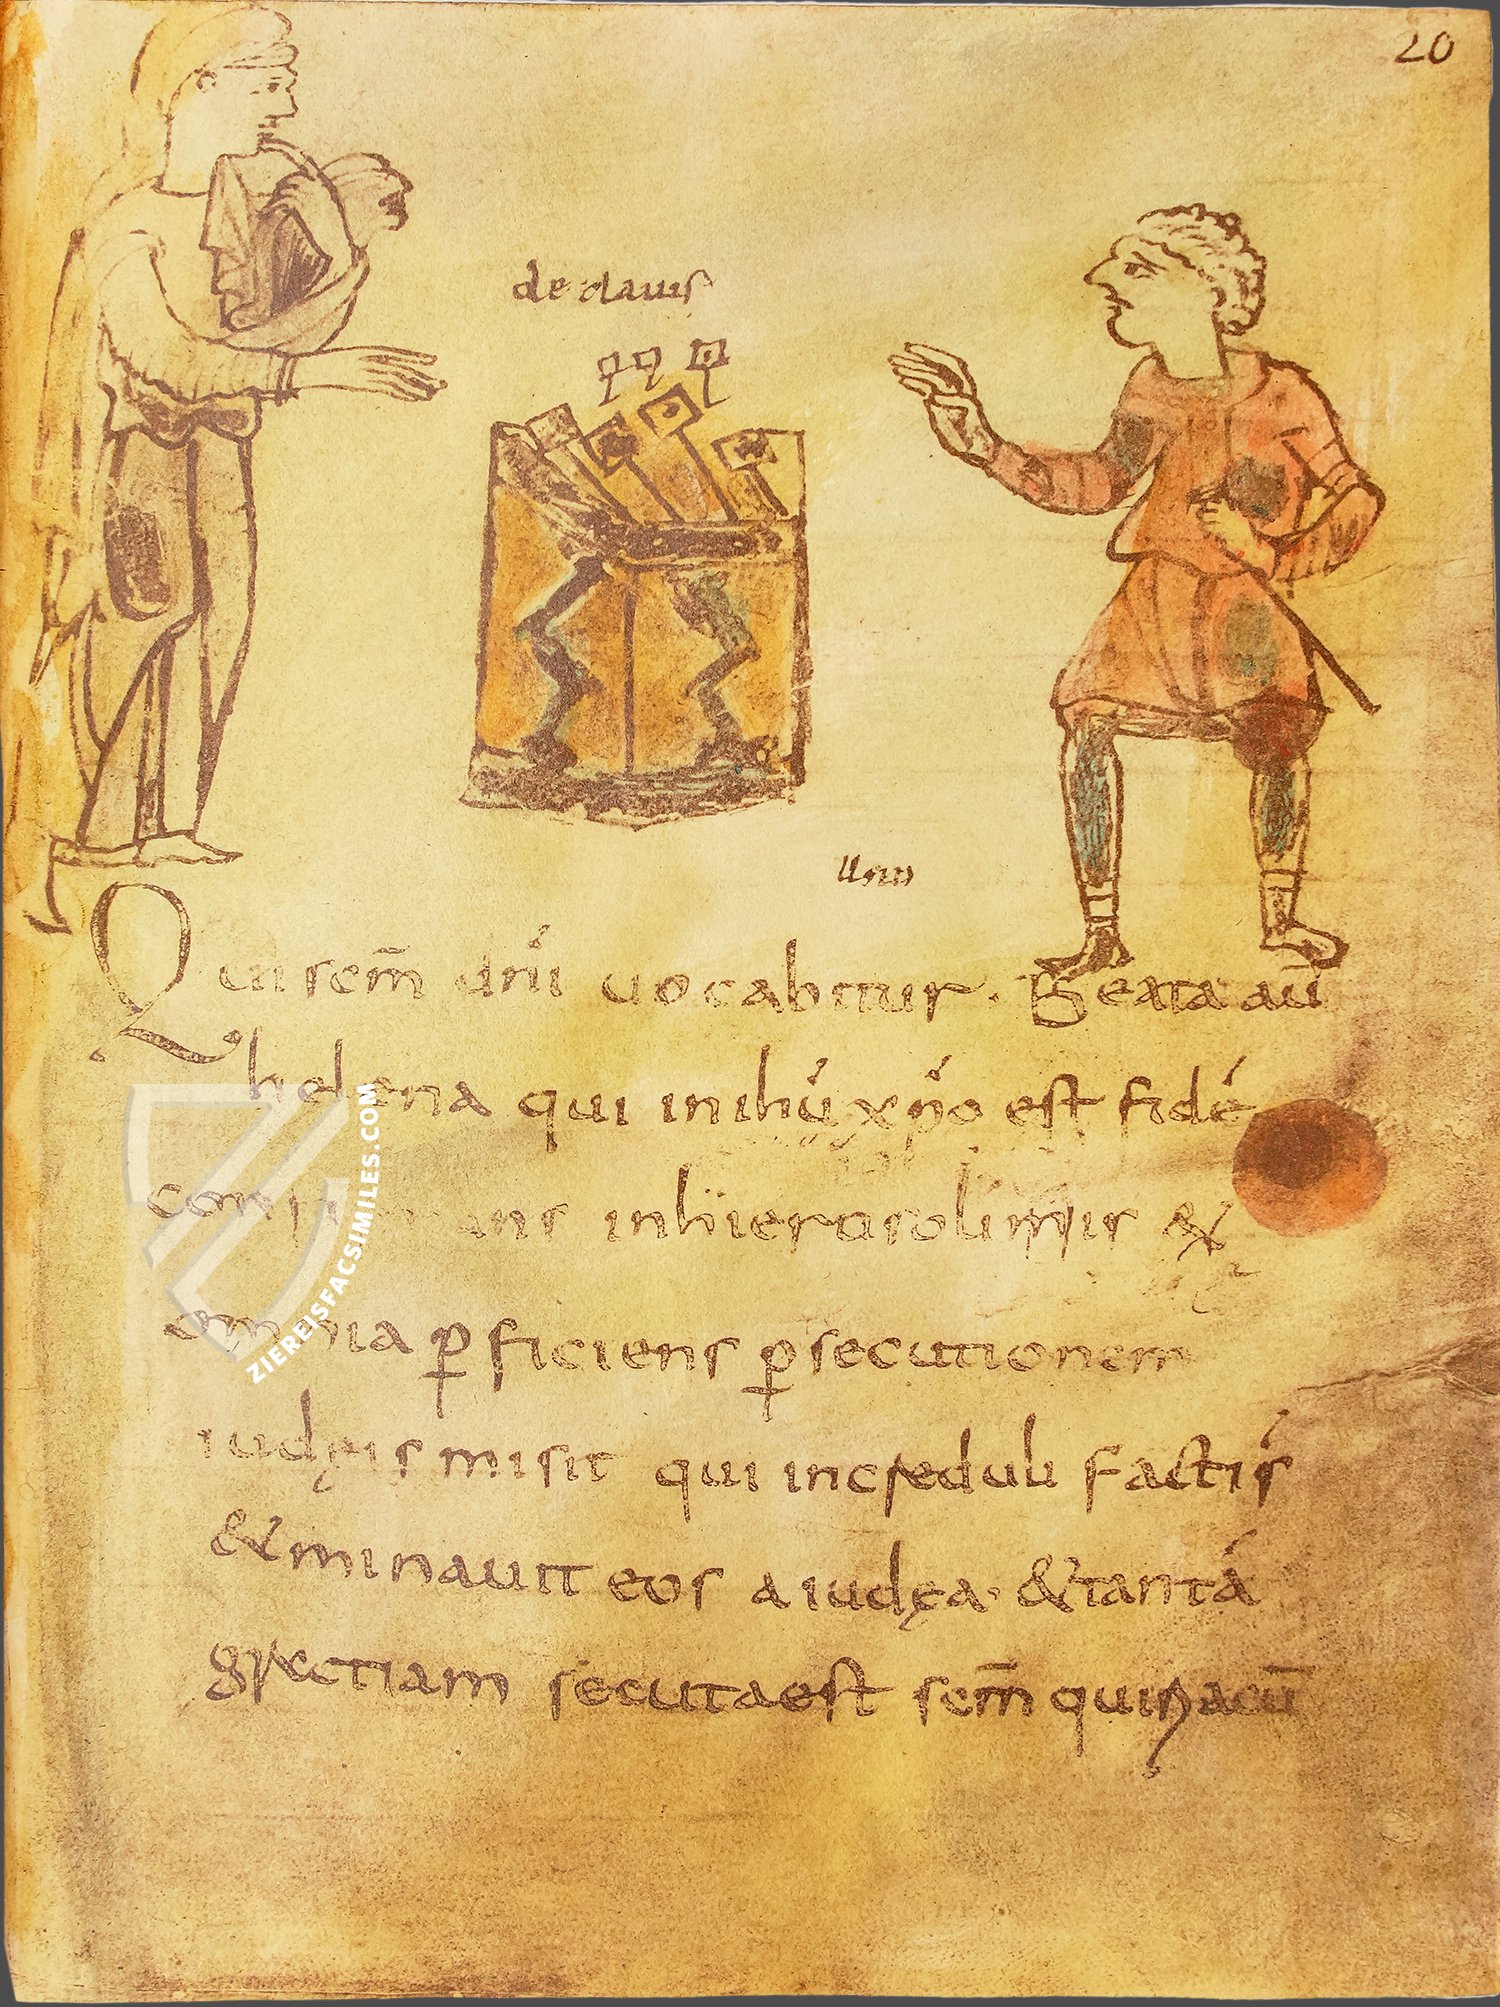 20
de clauis
Qui sem̄ dn̄i uocabitur. Beata au̅
helena qui in ihū xpo est fidē
inhierosolimis &
omnia ꝑficiens ꝑsecutionem
iudęis misit qui increduli factis
& minauit eos a iudęa· & tantā
grectiam secuta est sem̄ qui
ZIEREISFACSIMILES.COM